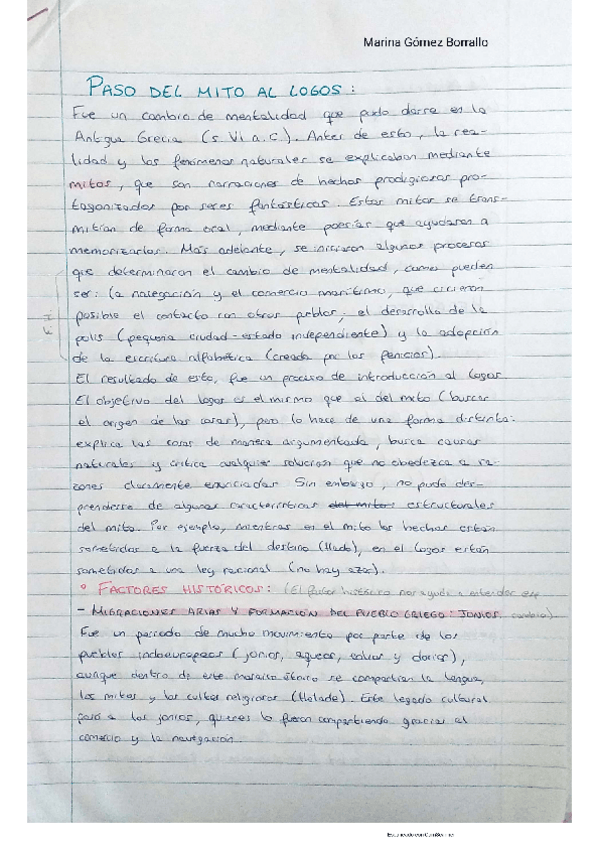 Marina Gómez Borrallo
PASO DEL MITO AL LOGOS:
Fue un cambio de mentalidad que pudo darse en la
Antigua Grecia (s. VI a.C.). Antes de esto, la rea-
lidad y los fenómenos naturales se explicaban mediante
mitos, que son narraciones de hechos prodigiosos pro-
tagonizados por seres fantásticos. Estos mitos se trans-
mitían de forma oral, mediante poesías que ayudaran a
memorizarlos. Más adelante, se iniciaron algunos procesos
que determinaron el cambio de mentalidad, como pueden
ser: la navegación y el comercio marítimo, que hicieron
posible el contacto con otros pueblos; el desarrollo de la
polis (pequeña ciudad-estado independiente) y la adopción
de la escritura alfabética (creada por los fenicios).
F.H
El resultado de esto, fue un proceso de introducción al logos.
El objetivo del logos es el mismo que el del mito (buscar
el origen de las cosas), pero lo hace de una forma distinta:
explica las cosas de manera argumentada, busca causas
naturales y critica cualquier solución que no obedezca a ra-
zones claramente enunciadas. Sin embargo, no pudo des-
prenderse de algunas características del mito estructurales
del mito. Por ejemplo, mientras en el mito los hechos están
sometidos a la fuerza del destino (Hado), en el Logos están
sometidos a una ley racional (no hay azar).
° FACTORES HISTÓRICOS: (El factor histórico nos ayuda a entender ese
- MIGRACIONES ARIAS Y FORMACIÓN DEL PUEBLO GRIEGO: JONIOS. cambio)
Fue un periodo de mucho movimiento por parte de los
pueblos indoeuropeos (jonios, aqueos, eolios y dorios),
aunque dentro de este mosaico étnico se compartían la lengua,
los mitos y los cultos religiosos (Hélade). Este legado cultural
pasó a los jonios, quienes lo fueron compartiendo gracias al
comercio y la navegación.
Escaneado con CamScanner